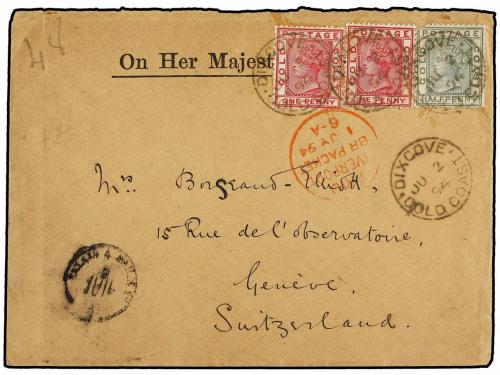 48
On Her Majest
GOLD POSTAGE COAST
ONE PENNY
GOLD POSTAGE COAST
ONE PENNY
GOLD POSTAGE COAST
HALFPENNY
LIVERPOOL
BR PACKET
JY 94
6-A
DIXCOVE
JU 2
94
GOLD COAST
Mrs
15 Rue de l'Observatoire,
Genève,
Switzerland.